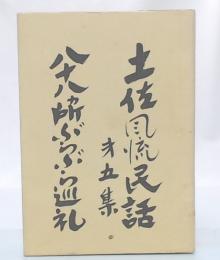 土佐風流民話
才五集
八十八ヶ所ぶらぶら巡礼